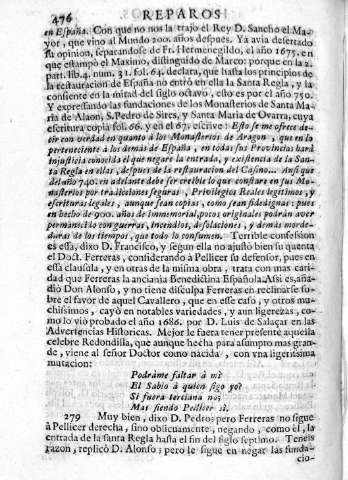 476 REPAROS
en España. Con que no nos la trajo el Rey D. Sancho el Ma-
yor, que vino al Mundo 200. años despues. Ya avia desertado
su opinion, separandose de Fr. Hermenegildo, el año 1675. en
que estampó el Maximo, distinguido de Marco: porque en la 2.
part. lib. 4. num. 31. fol. 64. declara, que hasta los principios de
la restauracion de España no entrò en ella la Santa Regla, y la
consiente en la mitad del siglo octavo, esto es por el año 750.
Y expressando las fundaciones de los Monasterios de Santa Ma-
ria de Alaon, S. Pedro de Sires, y Santa Maria de Ovarra, cuya
escritura copia fol. 66. y en el 67. escrive: Esto se me ofrece de-
cir con verdad en quanto à los Monasterios de Aragon, que en lo
perteneciente à los demàs de España, en todas sus Provincias harà
injusticia conocida el que negare la entrada, y existencia de la San-
ta Regla en ellas, despues de la restauracion del Casino... Ansi que
del año 740. en adelante debe ser creible lo que constare en sus Mo-
nasterios por tradiciones seguras, Privilegios Reales legitimos, y
escrituras legales, aunque sean copias, como sean fidedignas: pues
en hecho de 900. años de immemorial, pocos originales podràn aver
permanecido con guerras, incendios, desolaciones, y demàs morde-
duras de los tiempos, que todo lo consumen. Terrible confession
es essa, dixo D. Francisco, y segun ella no ajustò bien su quenta
el Doct. Ferreras, considerando à Pellicer su defensor, pues en
essa clausula, y en otras de la misma obra, trata con mas cari-
dad que Ferreras la anciania Benedictina Española. Assi es, aña-
diò Don Alonso, y no tiene disculpa Ferreras en reclinarse so-
bre el favor de aquel Cavallero, que en este caso, y otros mu-
chissimos, cayò en notables variedades, y aun ligerezas, co-
mo lo viò probado el año 1686. por D. Luis de Salaçar en las
Advertencias Historicas. Mejor le fuera tener presente aquella
celebre Redondilla, que aunque hecha para assumpto mas gran-
de, viene al señor Doctor como nacida, con vna ligerissima
mutacion:
Podràme faltar à mì
El Sabio à quien sigo yo?
Si fuera terciana no;
Mas siendo Pellicer sì.
279 Muy bien, dixo D. Pedro; pero Ferreras no sigue
à Pellicer derecha, sino obliquamente, negando, como èl, la
entrada de la santa Regla hasta el fin del siglo septimo. Teneis
razon, replicò D. Alonso; pero le sigue en negar las funda-
cio-